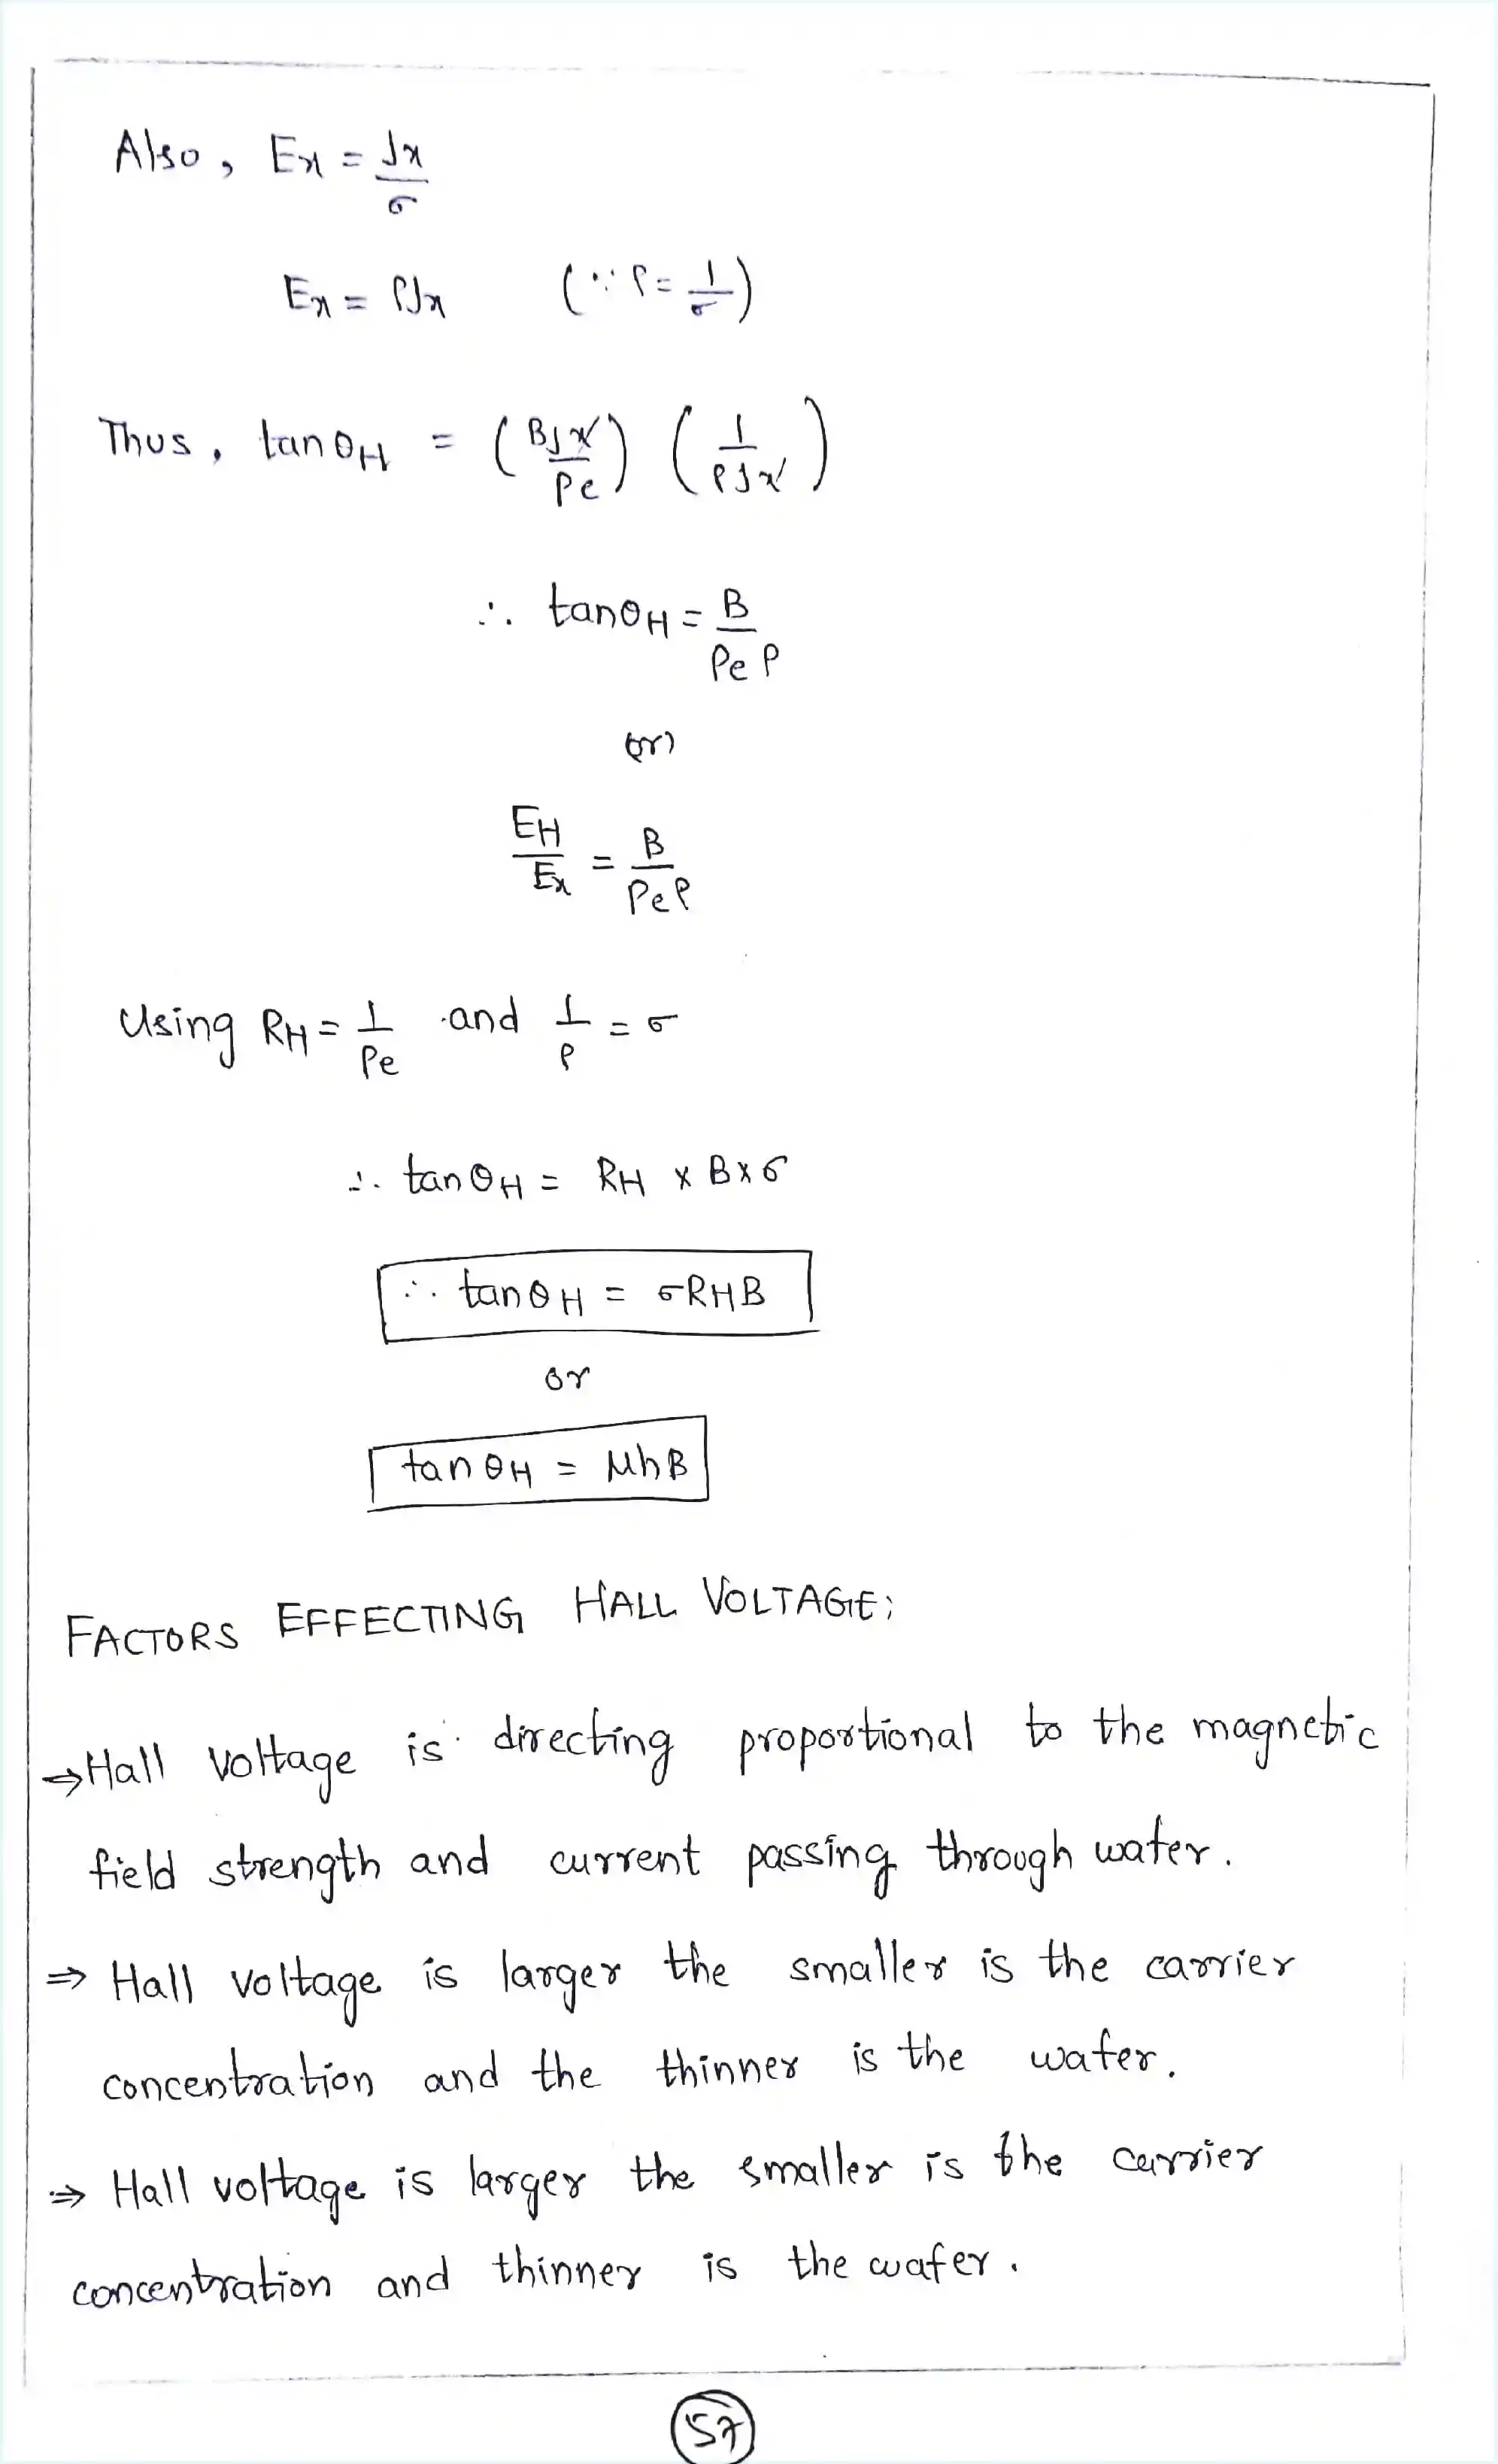 Also, Ex = Jx/σ
Ex = ρJx (∵ ρ = 1/σ)
Thus, tan θH = (BJx/Pe) (1/ρJx)
∴ tan θH = B/Peρ
(or)
EH/Ex = B/Peρ
Using RH = 1/Pe and 1/ρ = σ
∴ tan θH = RH × B × σ
∴ tan θH = σRHB
or
tan θH = μhB
FACTORS EFFECTING HALL VOLTAGE;
⇒ Hall voltage is directing proportional to the magnetic
field strength and current passing through wafer.
⇒ Hall voltage is larger the smaller is the carrier
concentration and the thinner is the wafer.
⇒ Hall voltage is larger the smaller is the carrier
concentration and thinner is the wafer.
57